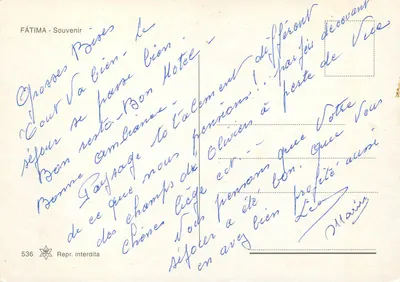 FÁTIMA - Souvenir
Grosses Bises
Tout va bien - le
séjour se passe bien -
Bon resto - Bon Hotel -
Bonne ambiance -
Paysage totalement différent
de ce que nous pensions !. parfois décevant
des champs de Oliviers à perte de vue
chênes liège etc --
Nous pensons que votre
séjour a été bon. que vous
en avez bien profité aussi
536 Repr. interdita